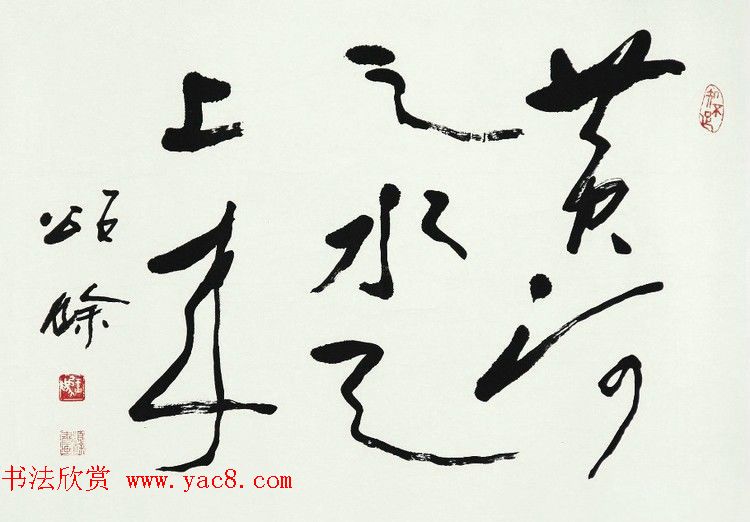 黄河
之水天
上来
颂馀
知不足
书法欣赏 www.yac8.com